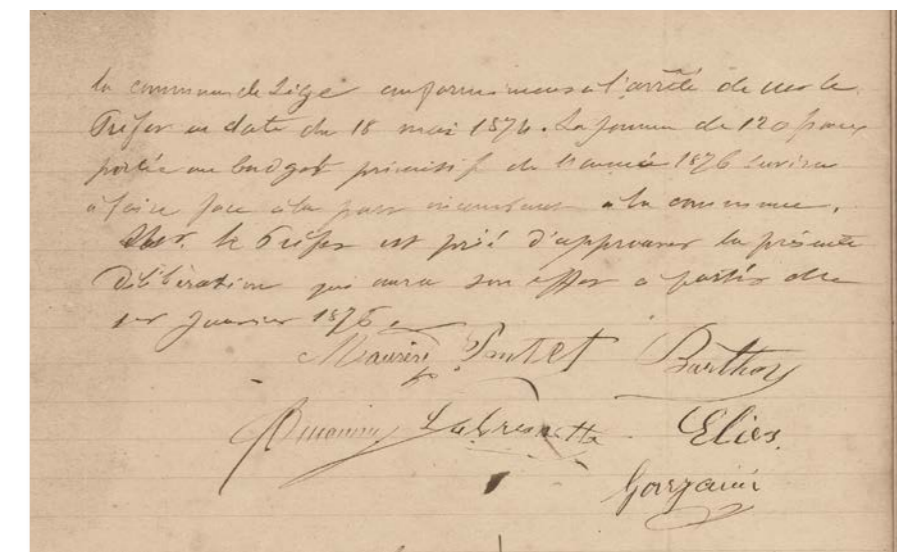 la commune de Liège conformément à l'arrêté de Mr le
Préfet en date du 18 mai 1874. La somme de 120 francs
portée au budget primitif de l'année 1876 servira
à faire face à la part incombant à la commune.
Mr le Préfet est prié d'approuver la présente
Délibération qui aura son effet à partir du
1er Janvier 1876
Pautet Barthos
Labrunette Elies